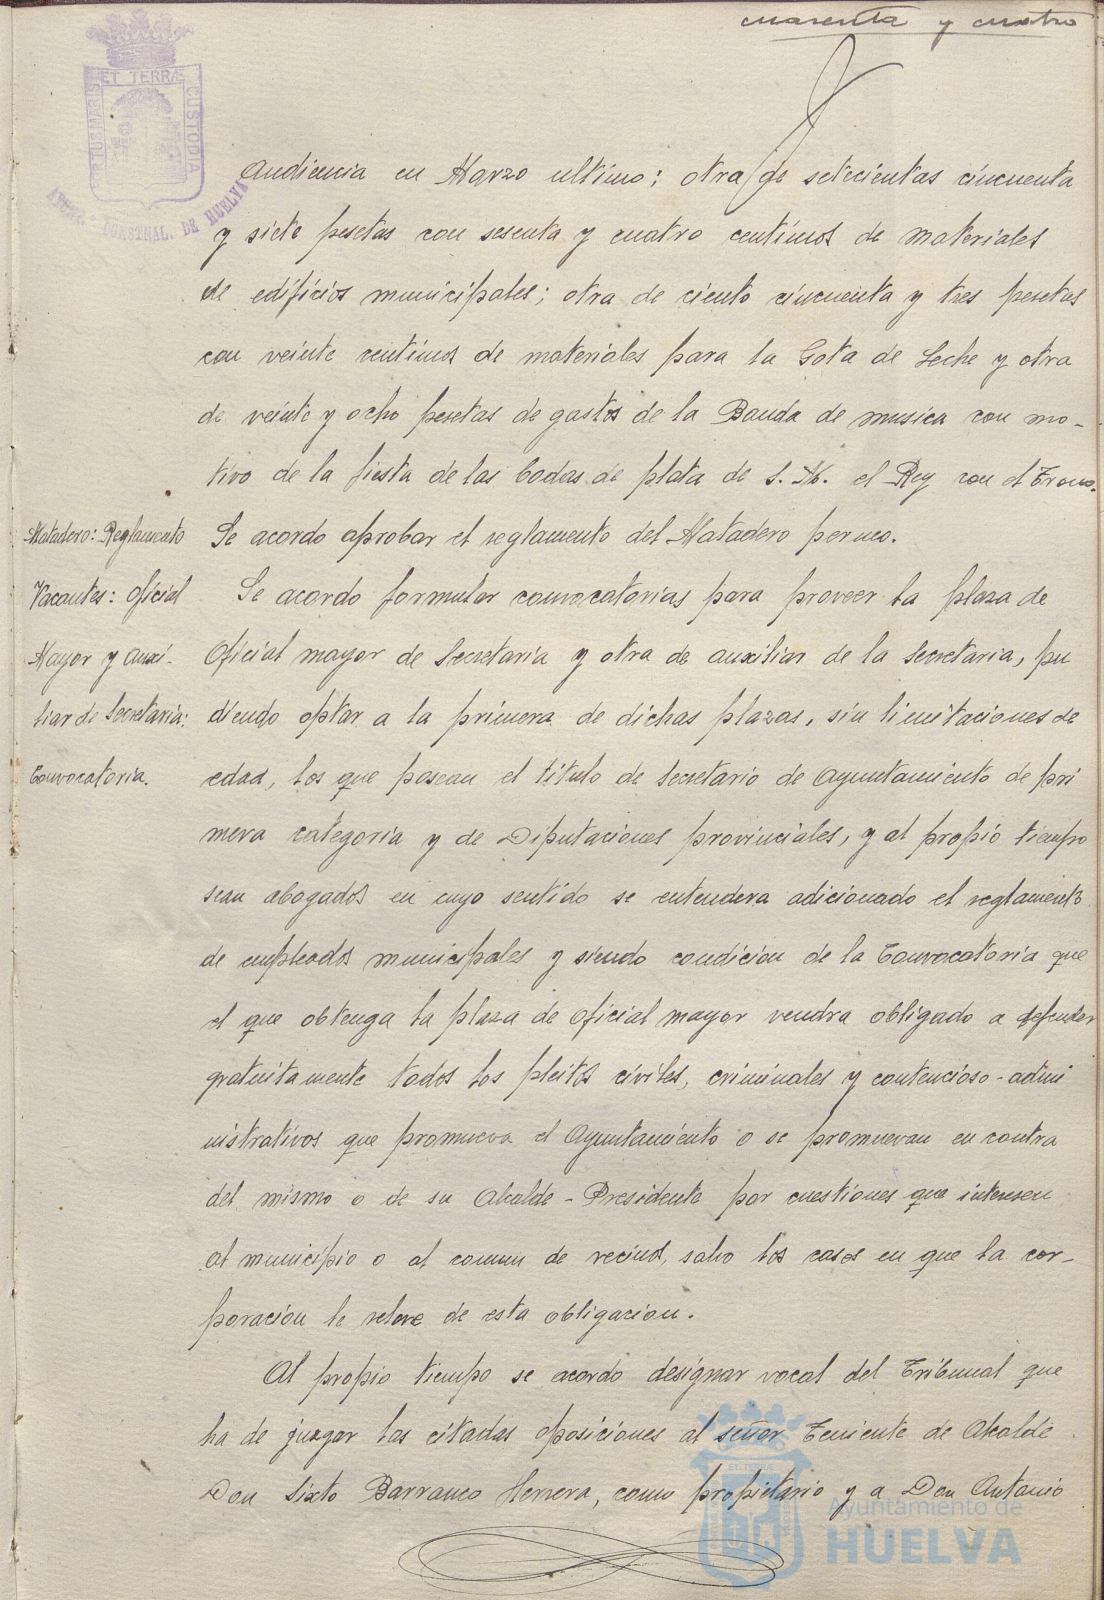 cuarenta y cuatro
ET TERRÆ
CUSTODIA
AYUN.- CONSTNAL. DE HUELVA
Audiencia en Marzo ultimo; otra de setecientas cincuenta
y siete pesetas con sesenta y cuatro centimos de materiales
de edificios municipales; otra de ciento cincuenta y tres pesetas
con veinte centimos de materiales para la Gota de Leche y otra
de veinte y ocho pesetas de gastos de la Banda de musica con mo-
tivo de la fiesta de las bodas de plata de S. M. el Rey con el Trono.
Matadero: Reglamento
Se acordo aprobar el reglamento del Matadero
Vacantes: oficial
Se acordo formular convocatorias para proveer la plaza de
Mayor y auxi-
Oficial mayor de Secretaria y otra de auxiliar de la Secretaria, pu
liar de Secretaria:
diendo optar a la primera de dichas plazas, sin limitaciones de
Convocatoria.
edad, los que posean el titulo de Secretario de Ayuntamiento de pri
mera categoria y de Diputaciones provinciales, y al propio tiempo
sean abogados en cuyo sentido se entendera adicionado el reglamento
de empleados municipales y siendo condicion de la Convocatoria que
el que obtenga la plaza de Oficial mayor vendra obligado a defender
gratuitamente todos los pleitos civiles, criminales y contencioso-admi
nistrativos que promueva el Ayuntamiento o se promuevan en contra
del mismo o de su Alcalde-Presidente por cuestiones que interesen
al municipio o al comun de vecinos, salvo los casos en que la cor-
poracion le releve de esta obligacion.
Al propio tiempo se acordo designar vocal del Tribunal que
ha de juzgar las citadas oposiciones al señor Teniente de Alcalde
Don Sixto Barranco Herrera, como propietario y a Don Antonio
Ayuntamiento de
HUELVA